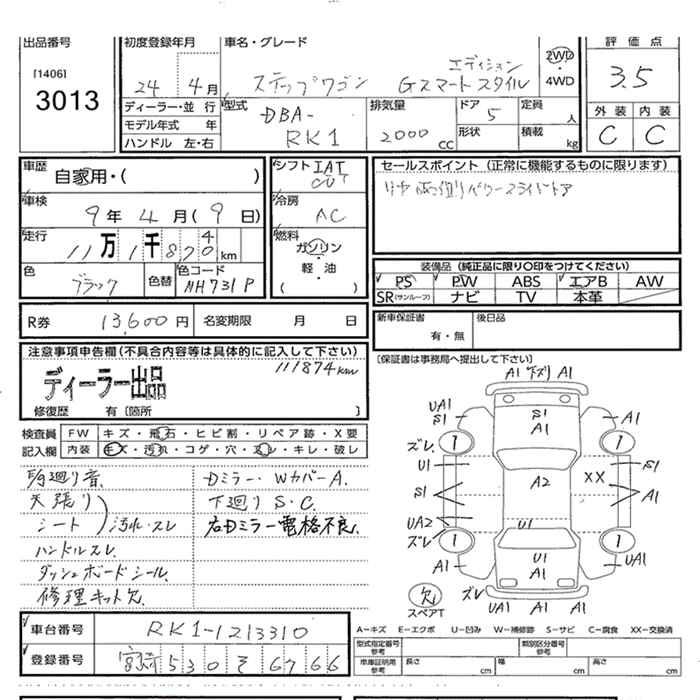 出品番号 初度登録年月 車名・グレード 評価点
[1406] 24年 4月 ステップワゴン エディション Gスマートスタイル 2WD 4WD 3.5
3013
ディーラー・並行 型式 DBA-RK1 排気量 2000cc ドア 5 定員 人
モデル年式 年 形状 積載 kg
ハンドル 左・右
外装 内装
C C
車歴 自家用・( )
シフト IAT
冷房 AC
燃料 ガソリン 軽・油 ( )
車検 9年 4月 (9日)
走行 11万1千870 4 km
色 ブラック 色替 色コード NH731P
セールスポイント (正常に機能するものに限ります)
リヤ 両側パワースライドドア
装備品 (純正品に限り○印をつけてください)
PS PW ABS エアB AW
SR(サンルーフ) ナビ TV 本革
R券 13,600円 名変期限 月 日
新車保証書 有・無 後日品
[保証書は事務局へ提出して下さい]
注意事項申告欄(不具合内容等は具体的に記入して下さい)
111874km
ディーラー出品
修復歴 有 [箇所 ]
検査員記入欄
FW キズ・飛石・ヒビ割・リペア跡・X要
内装 キズ・汚れ・コゲ・穴・スレ・キレ・破レ
足廻り音 Dミラー・WカバーA.
天張り 下廻りS・C.
シート 汚れ・スレ 右Dミラー電格不良.
ハンドルスレ.
ダッシュボードシール.
修理キット欠.
車台番号 RK1-1213310
登録番号 宮崎 530 そ 6766
A1 下ズリ A1
UA1 S1 S1 A1 A1
ズレ 1 1
U1 A2 XX S1
S1 A1
UA2 U1
ズレ 1 1
A1 U1 A1 UA1
欠 スペアT
ズレ UA1 A1 UA1
A-キズ E-エクボ U-凹み W-補修跡 S-サビ C-腐食 XX-交換済
型式指定番号参考 類別区分番号参考
車庫証明用参考 長さ cm 幅 cm 高さ cm